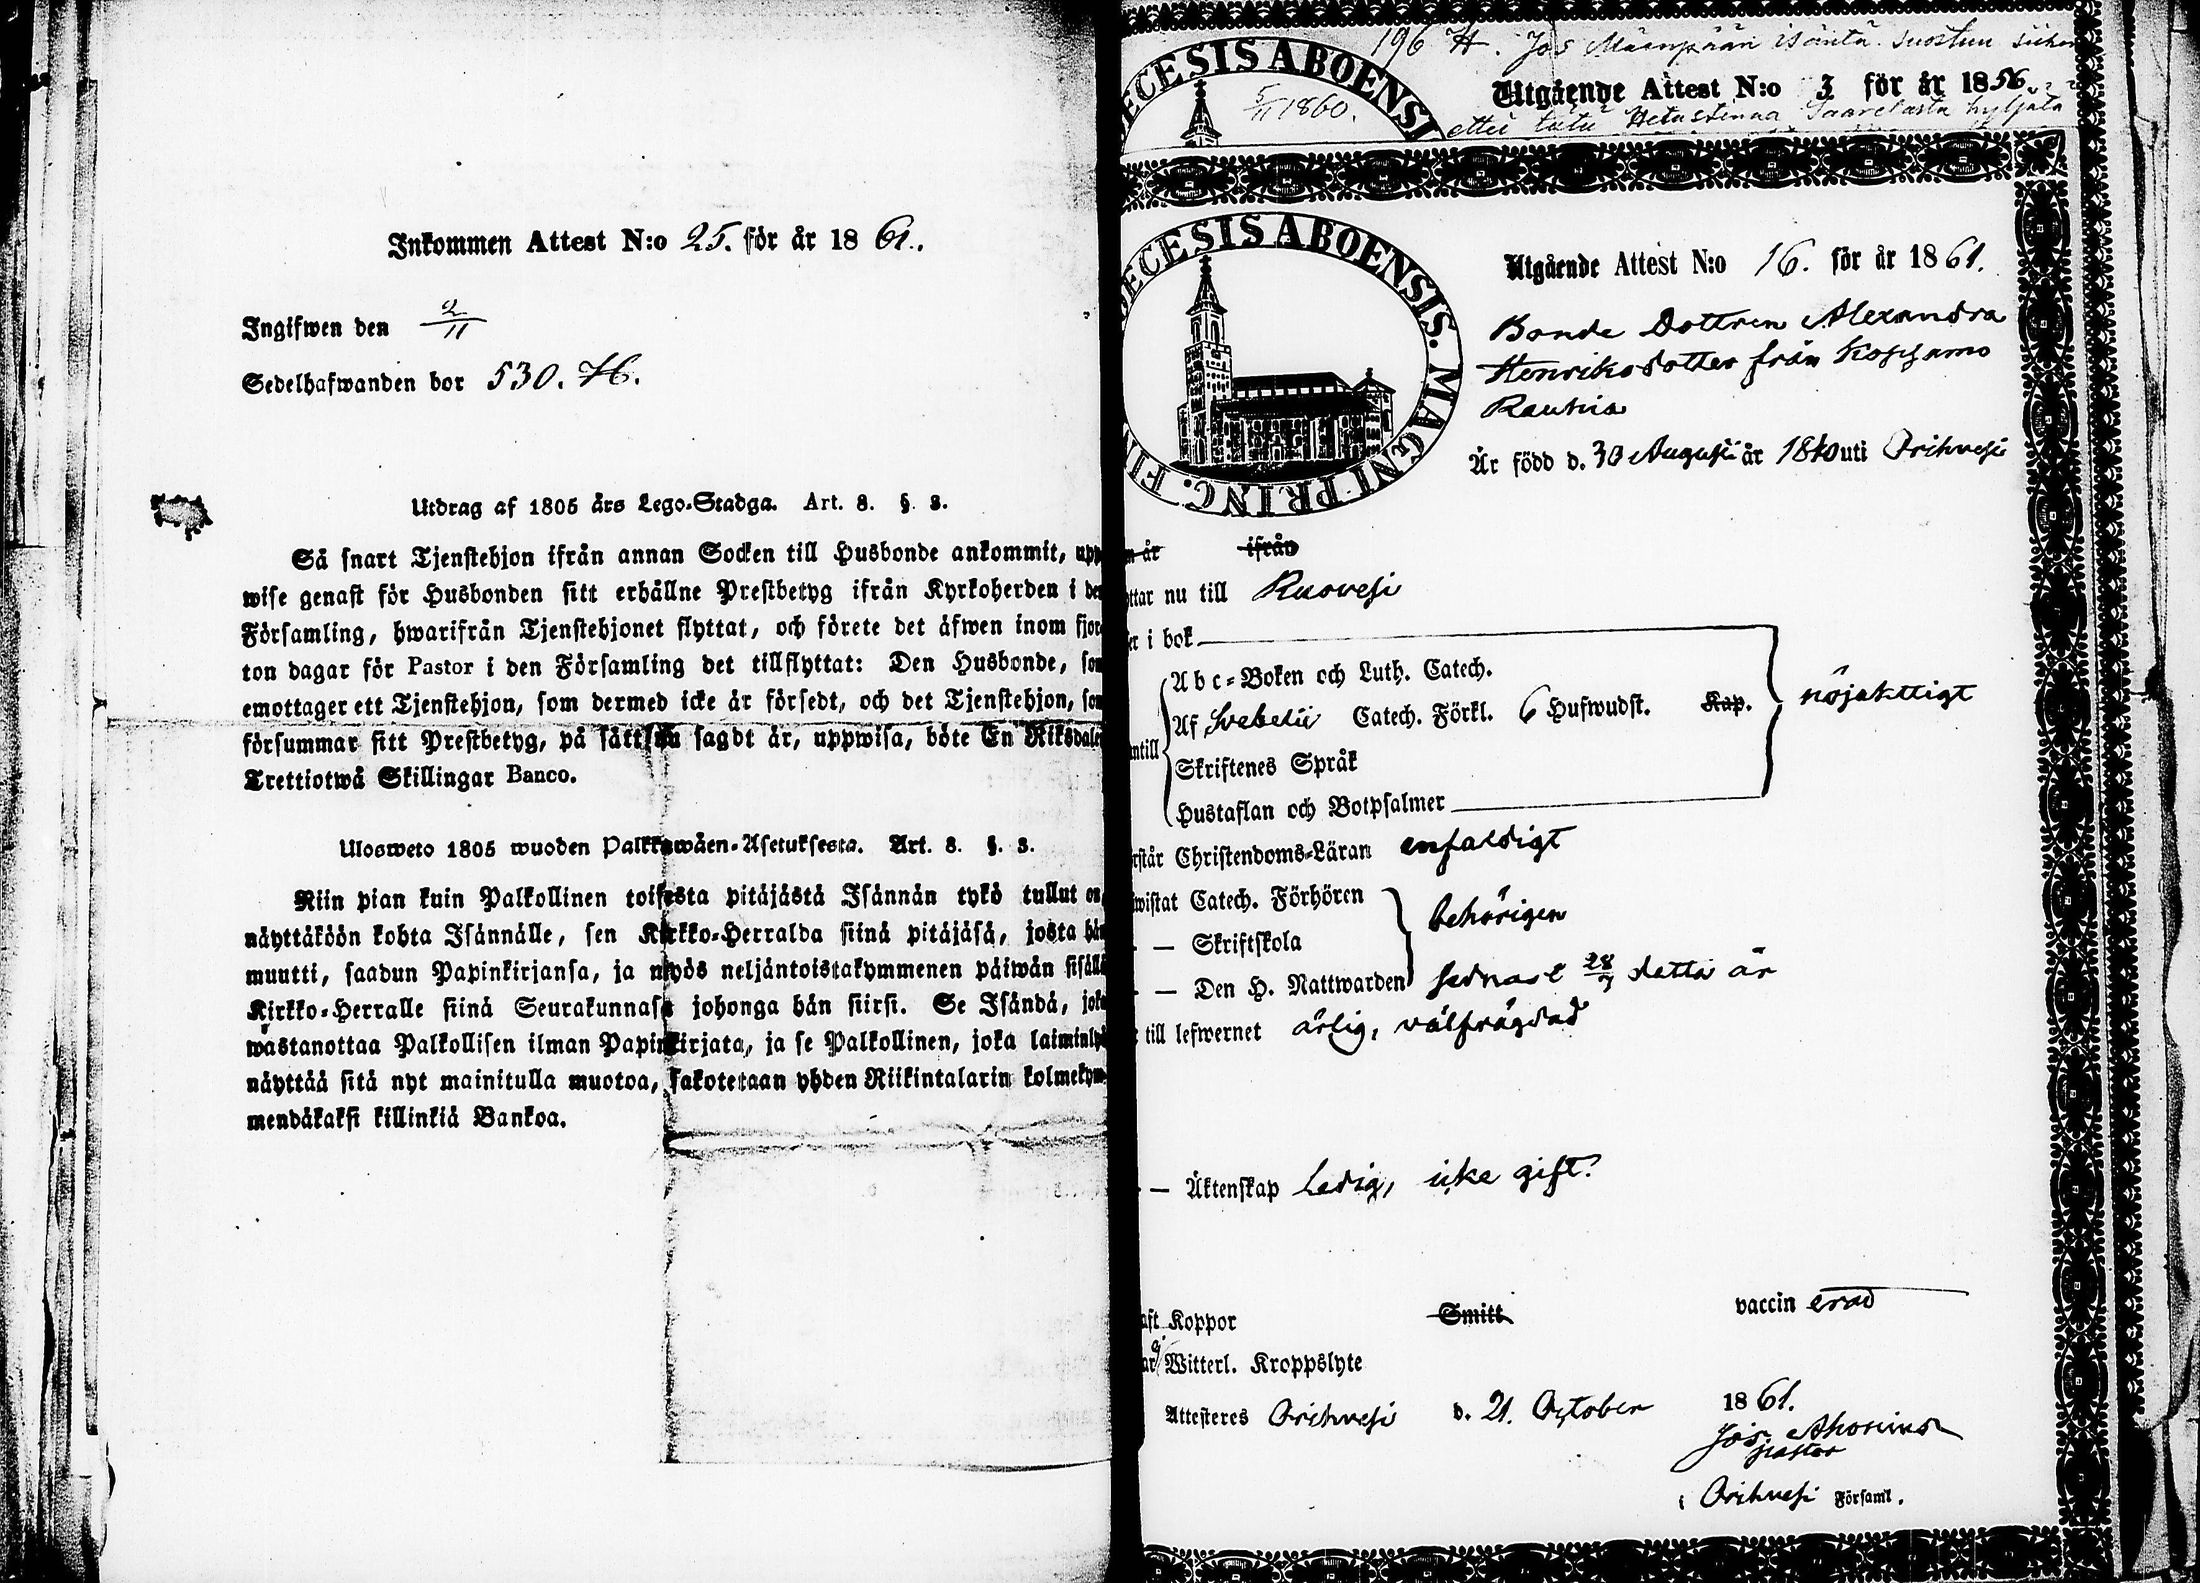 Inkommen Attest N:o 25. för år 1861.
Ingifwen den 2/11
Sedelhafwanden bor 530. H.
Utdrag af 1805 års Lego-Stadga. Art. 8. §. 3.
Så snart Tjenstehjon ifrån annan Socken till Husbonde ankommit, upp
wise genast för Husbonden sitt erhållne Prestbetyg ifrån Kyrkoherden i den
Församling, hwarifrån Tjenstehjonet flyttat, och förete det äfwen inom fjor
ton dagar för Pastor i den Församling det tillflyttat: Den Husbonde, som
emottager ett Tjenstehjon, som dermed icke är försedt, och det Tjenstehjon, som
försummar sitt Prestbetyg, på sätt som sagdt är, uppwisa, böte En Riksdaler
Trettiotwå Skillingar Banco.
Ulosweto 1805 wuoden Palkkawäen-Asetuksesta. Art. 8. §. 3.
Niin pian kuin Palkollinen toisesta pitäjästä Isännän tykö tullut on,
näyttäköön kohta Isännälle, sen Kirkko-Herralda siinä pitäjäsä, josta hän
muutti, saadun Papinkirjansa, ja myös neljäntoistakymmenen päiwän sisällä
Kirkko-Herralle siinä Seurakunnasa johonga hän siirsi. Se Isändä, joka
wastanottaa Palkollisen ilman Papinkirjata, ja se Palkollinen, joka laiminlyö
näyttää sitä nyt mainitulla muotoa, sakotetaan yhden Riikintalarin kolmekym-
mendäkaksi killinkiä Bankoa.
196 H. Jos Mäenpään isäntä suostuu siihen
Utgående Attest N:o 3 för år 1856.
5/11 1860.
ettei tätä Hetastinna Saarelasta hyljätä
ECESIS ABOENSI
Utgående Attest N:o 16. för år 1861.
ECESIS ABOENSIS. MAGNI PRINC. FI
Bonde Dottren Alexandra
Henriksdotter från Koppamo
Rautio
Är född d. 30 Augusti år 1840 uti Orihvesi
m år ifrån
ttar nu till Ruovesi
er i bok
Abc-Boken och Luth. Catech.
Af Svebelii Catech. Förkl. 6 Hufwudst. Kap. nöjaktigt
ntill
Skriftenes Språk
Hustaflan och Botpsalmer
rstår Christendoms-Läran enfaldigt
wistat Catech. Förhören
— — Skriftskola behörigen
— — Den H. Nattwarden sednast 28/7 detta år
till lefwernet ärlig, välfrägdad
— — Äktenskap Ledig, icke gift.
aft Koppor Smitt vaccin erad
ar ej Witterl. Kroppslyte
Attesteres Orihvesi d. 21. October 1861.
Jos. Ahonius
pastor
i Orihvesi Församl.